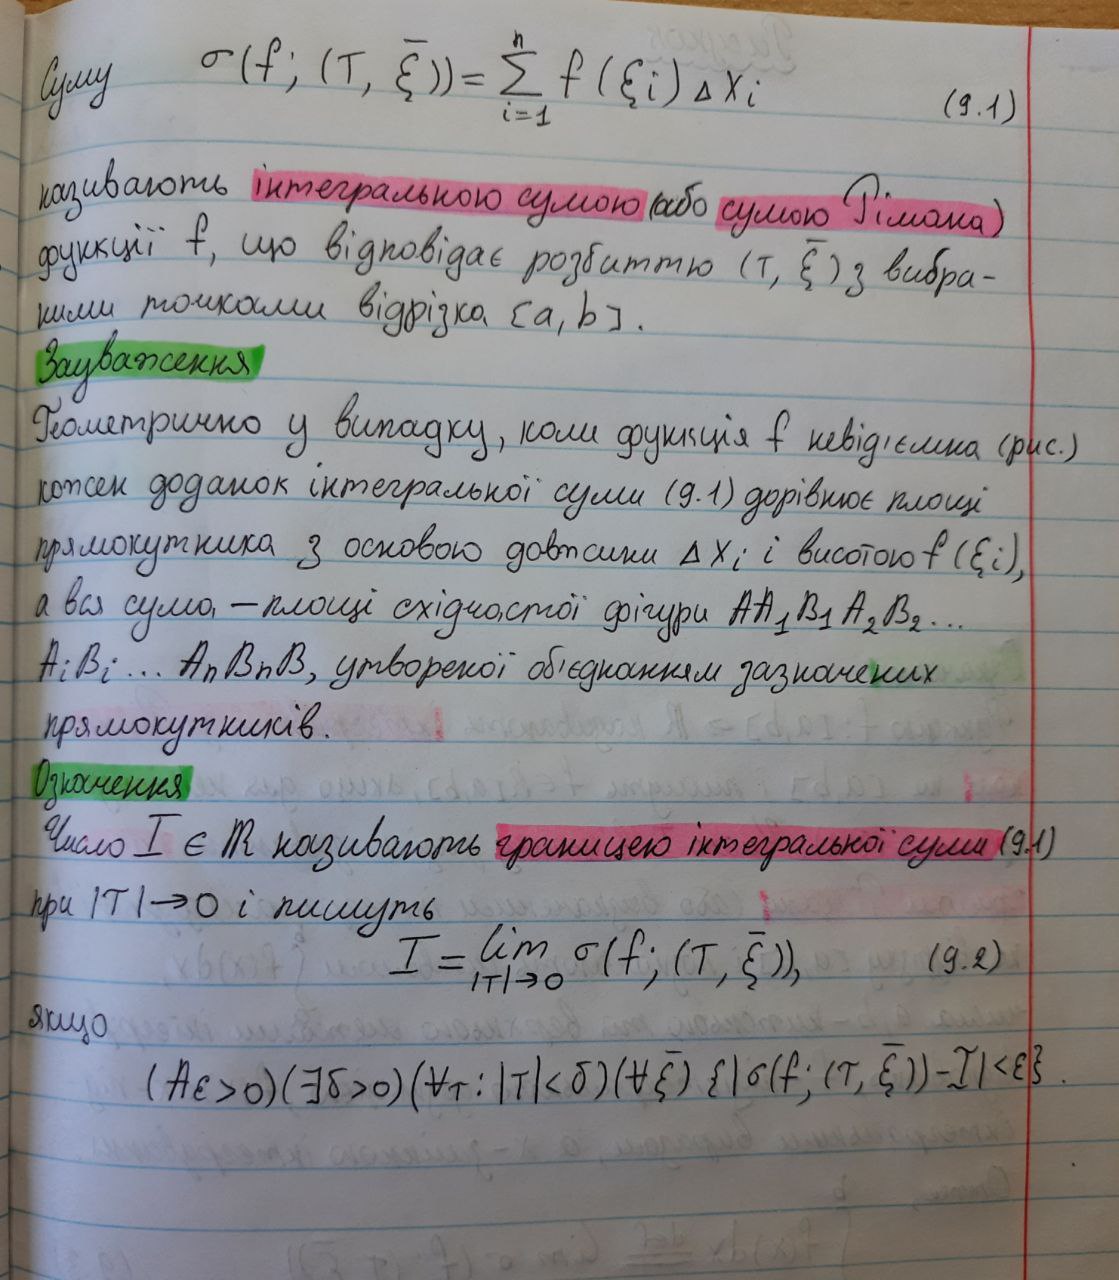 Суму σ(f; (T, ξ̄)) = ∑ᵢ₌₁ⁿ f(ξᵢ) Δxᵢ (9.1)
називають інтегральною сумою (або сумою Рімана)
функції f, що відповідає розбиттю (T, ξ̄) з вибра-
ними точками відрізка [a, b].
Зауваження
Геометрично у випадку, коли функція f невід'ємна (рис.)
кожен доданок інтегральної суми (9.1) дорівнює площі
прямокутника з основою довжини Δxᵢ і висотою f(ξᵢ),
а вся сума, – площі східчастої фігури AA₁B₁A₂B₂...
AᵢBᵢ... AₙBₙB, утвореної об'єднанням зазначених
прямокутників.
Означення
Число I ∈ ℝ називають границею інтегральної суми (9.1)
при |T|→0 і пишуть
I = lim_{|T|→0} σ(f; (T, ξ̄)), (9.2)
якщо
(∀ε>0)(∃δ>0)(∀T: |T|<δ)(∀ξ̄) {|σ(f; (T, ξ̄))-I|<ε}.